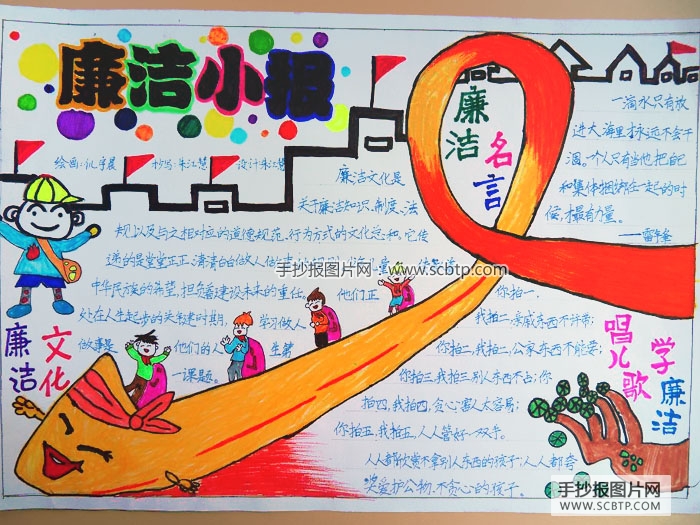 廉洁小报
绘画:仉宇晨 抄写:朱江慧 设计:朱江慧
廉洁文化是
关于廉洁知识、制度、法
规以及与之相对应的道德规范、行为方式的文化总和。它传
递的是堂堂正正、清清白白做人
中华民族的希望,担负着建设未来的重任。他们正
处在人生起步的关键时期,学习做人
做事是他们的人生第
一课题。
廉洁文化
廉洁名言
一滴水只有放
进大海里才永远不会干
涸。一个人只有当他把自己
和集体捆绑在一起的时
候,才最有力量。
——雷锋
你拍一,
我拍一,
东西不许带;
我拍二,公家东西不能要;
你拍三,我拍三,别人东西不占;你
拍四,我拍四,贪心害人太容易;
你拍五,我拍五,人人管好一双手。
人人都欣赏不拿别人东西的孩子;人人都夸
奖爱护公物、不贪心的孩子。
唱儿歌
学廉洁
手抄报图片网 - www.scbtp.com
手抄报图片网
WWW.SCBTP.COM